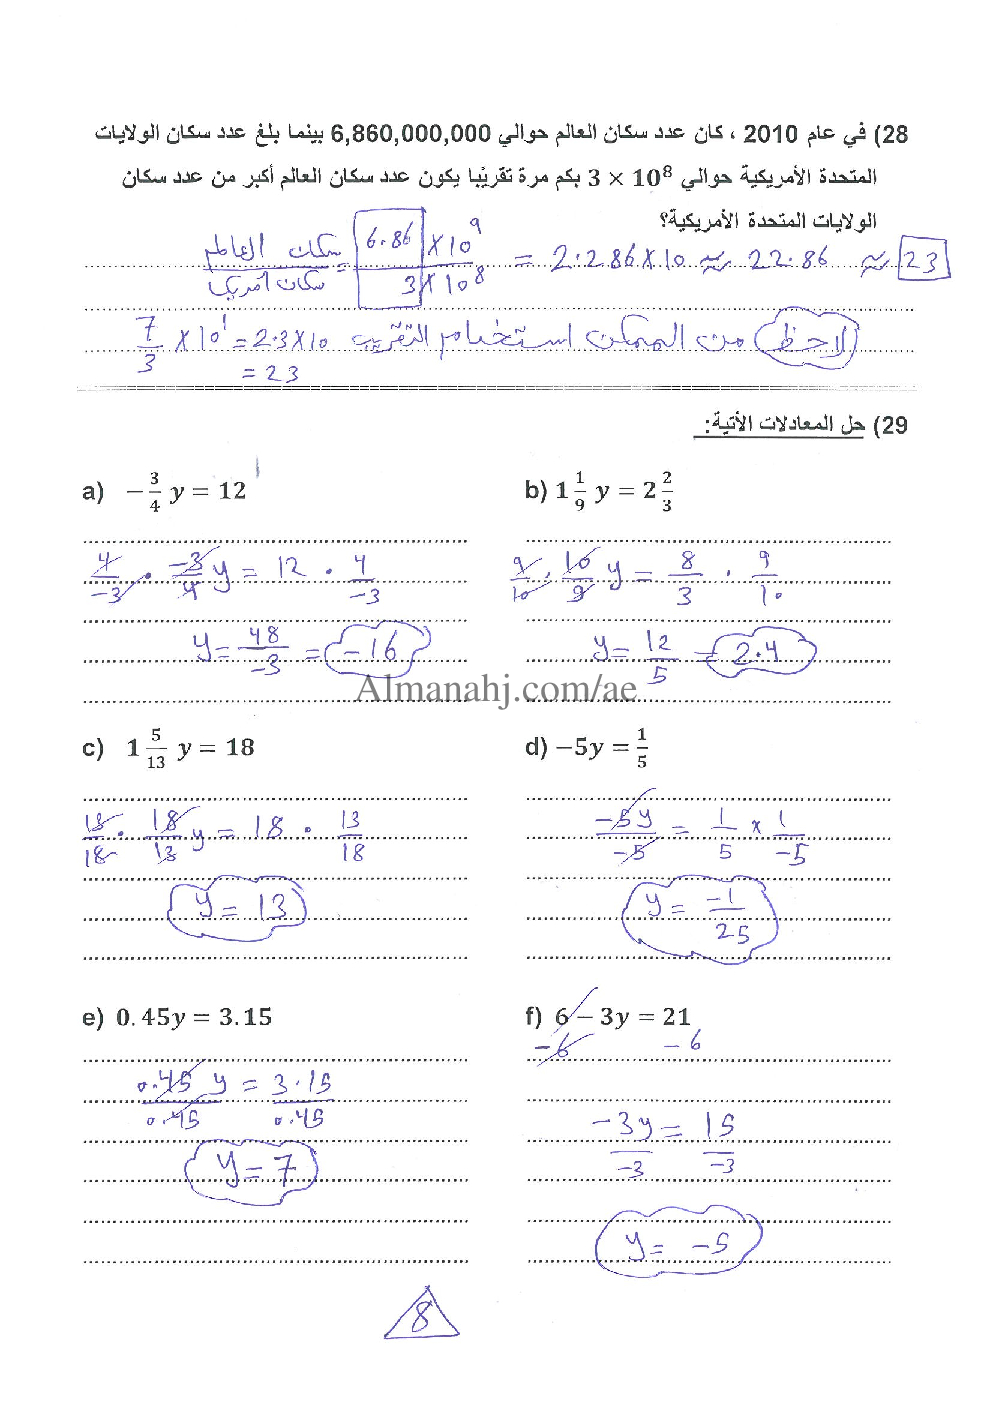 28) في عام 2010 ، كان عدد سكان العالم حوالي 6,860,000,000 بينما بلغ عدد سكان الولايات
المتحدة الأمريكية حوالي 3 × 10⁸ بكم مرة تقريبًا يكون عدد سكان العالم أكبر من عدد سكان
الولايات المتحدة الأمريكية؟
سكان العالم / سكان أمريكا = 6.86 × 10⁹ / 3 × 10⁸ = 2.286 × 10 ≈ 22.86 ≈ 23
لاحظ من الممكن استخدام التقريب 7/3 × 10¹ = 2.3 × 10
= 23
29) حل المعادلات الأتية:
a) −3/4 y = 12
4/−3 · −3/4 y = 12 · 4/−3
y = 48/−3 = −16
b) 1 1/9 y = 2 2/3
9/10 · 10/9 y = 8/3 · 9/10
y = 12/5 = 2.4
Almanahj.com/ae
c) 1 5/13 y = 18
13/18 · 18/13 y = 18 · 13/18
y = 13
d) −5y = 1/5
−5y/−5 = 1/5 × 1/−5
y = −1/25
e) 0.45y = 3.15
0.45 y/0.45 = 3.15/0.45
y = 7
f) 6 − 3y = 21
−6 −6
−3y/−3 = 15/−3
y = −5
8